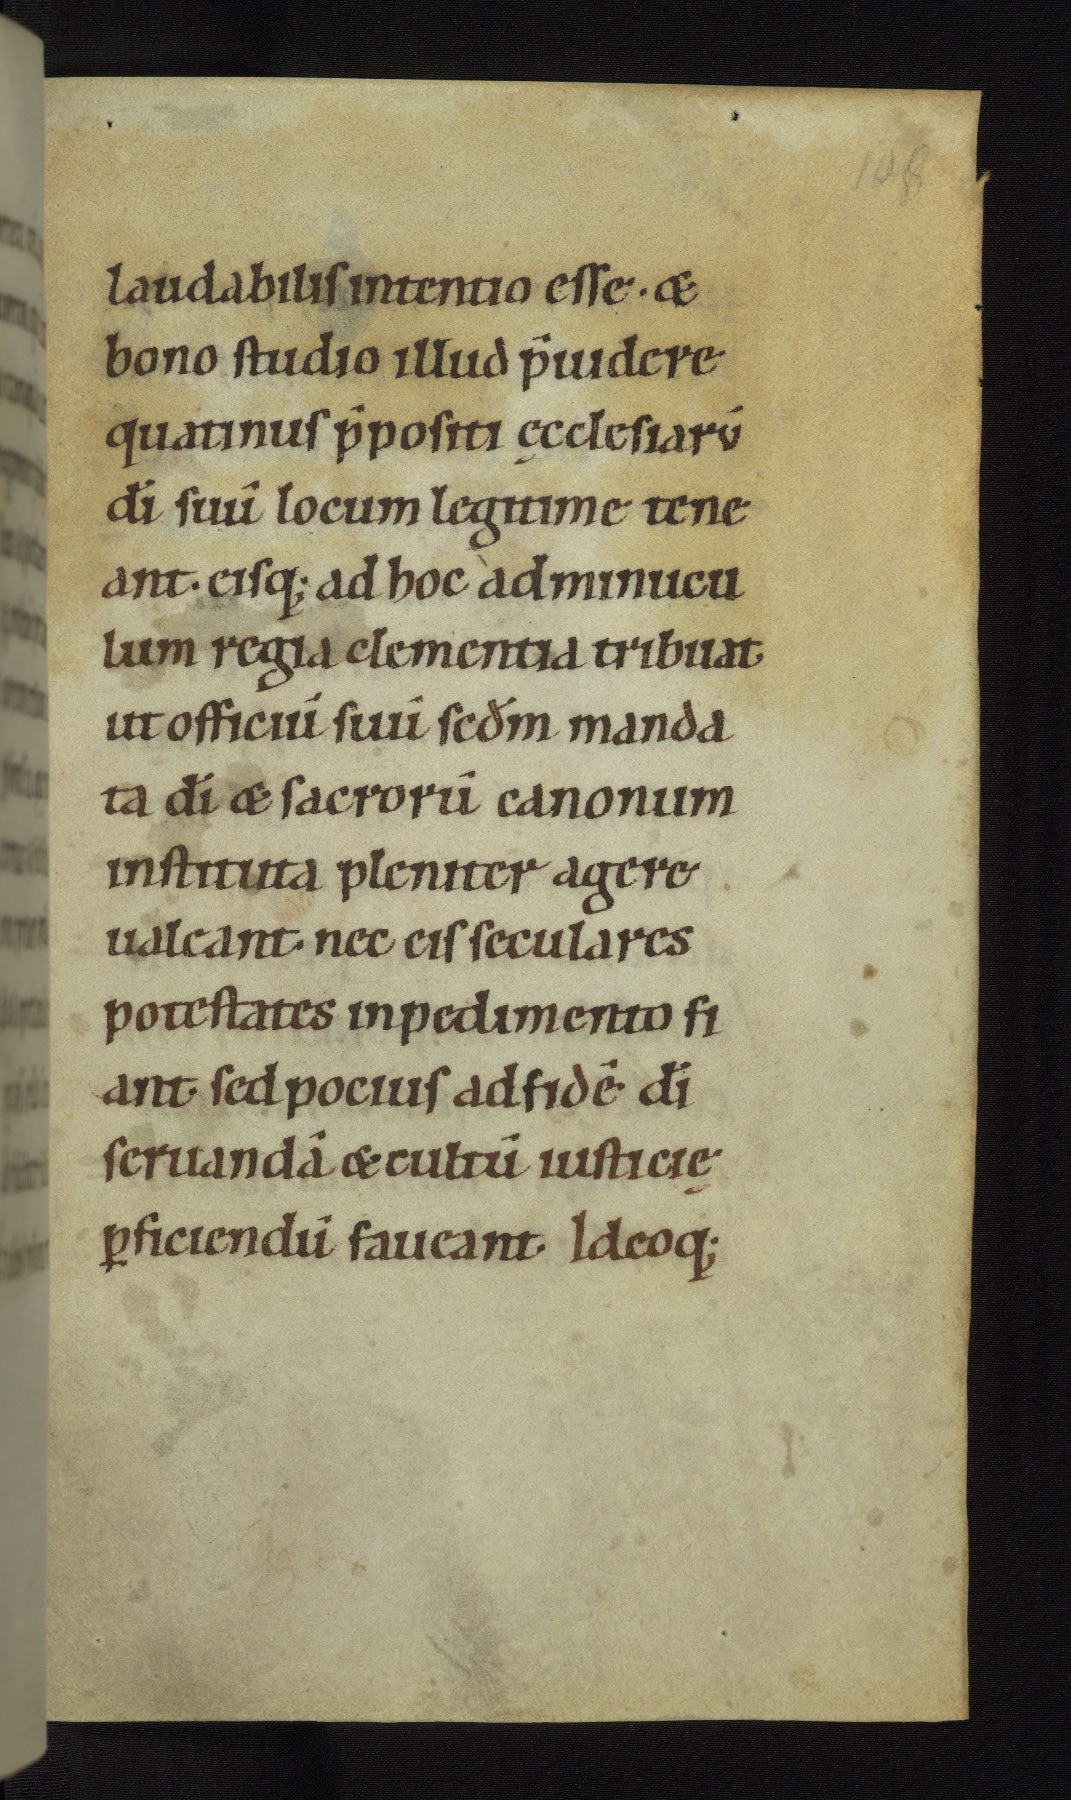 108
laudabilis intentio esse · &
bono studio illud p̄uidere
quatinus p̄positi ęcclesiarū
dī suū locum legitime tene
ant · eisq; ad hoc adminucu
lum regia clementia tribuat
ut officiū suū sedm̄ manda
ta dī & sacrorū canonum
instituta pleniter agere
ualeant · nec eis seculares
potestates inpedimento fi
ant · sed pocius ad fidē dī
seruandā & cultū iusticię
ꝑficiendū faueant · Ideoq;